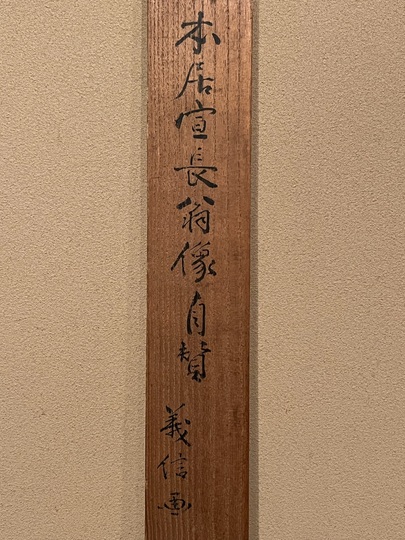 本居宣長翁像自賛
義信画